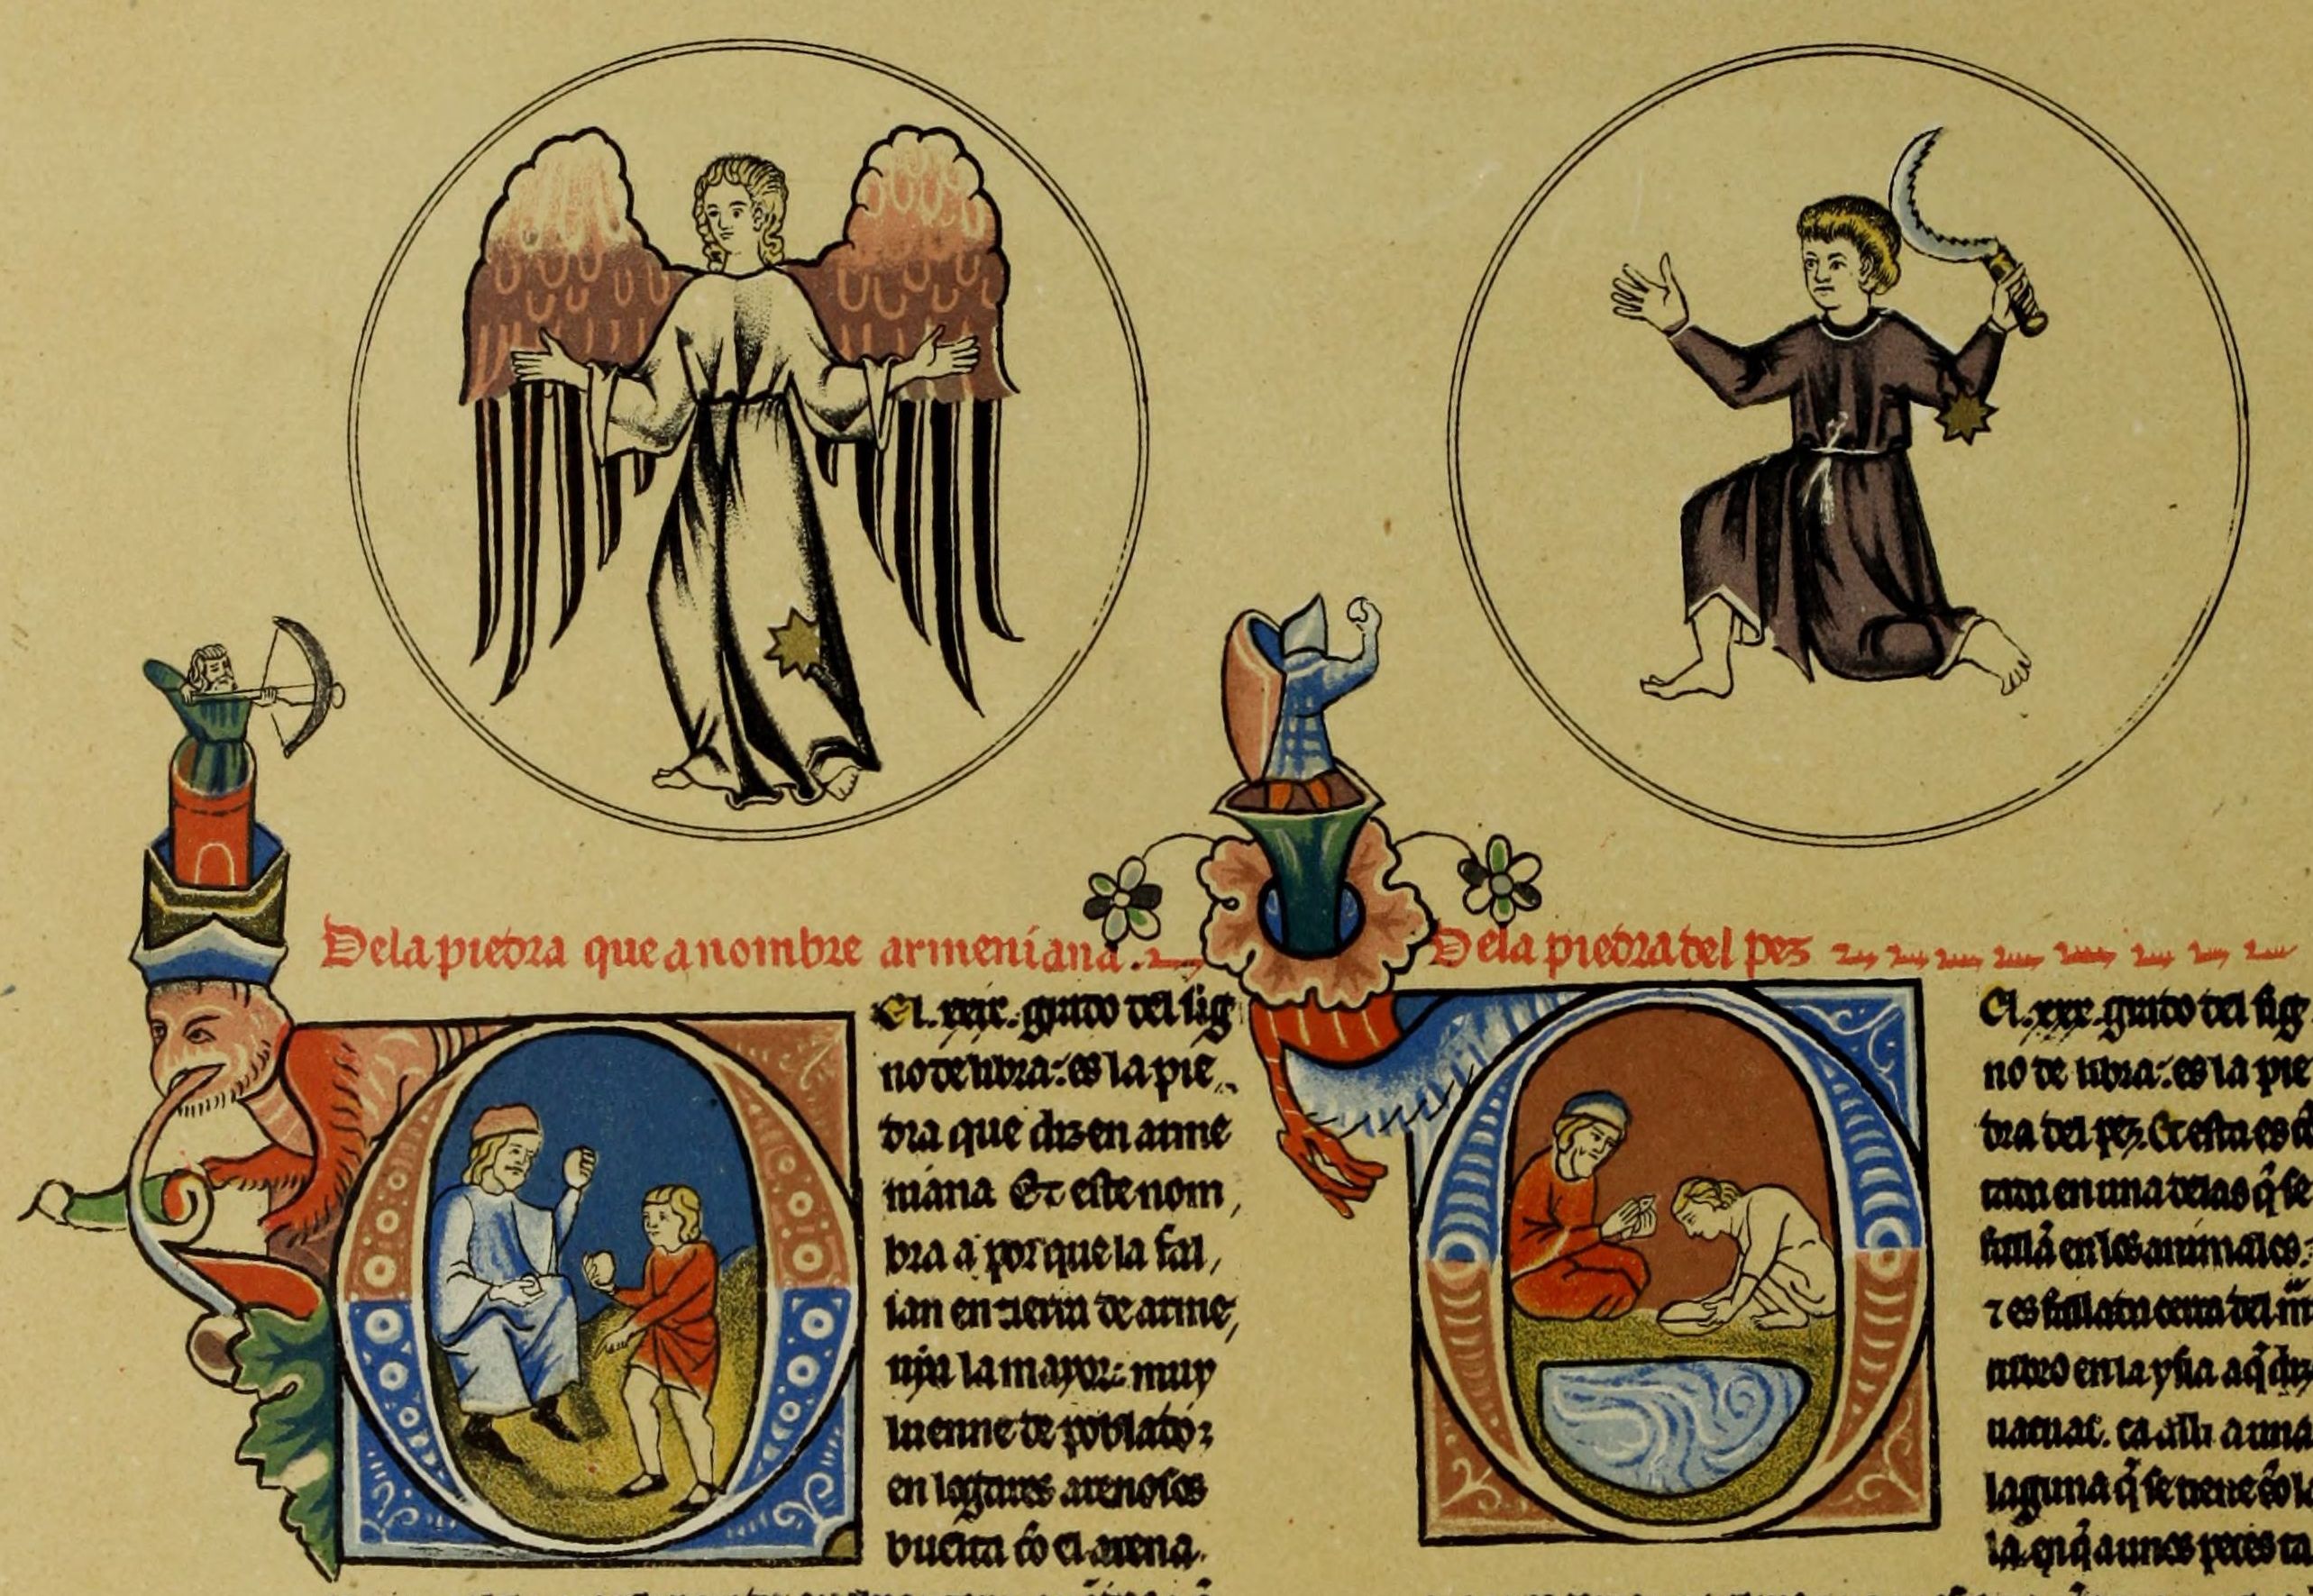 Dela piedra que a nombre armeniana.
El .xxix. grado del sig
no de libra: es la pie
dra que dizen arme
niana Et este nom
bra a por que la fal,
lan en tierra de arme,
nia la mayor: muy
luenne de poblado:
en logares arenosos
buelta cō el arena.
Dela piedra del pez
El .xxx. grado del sig
no de libra: es la pie
dra del pez. Et esta es
en una delas q̄ se
fallā en los animales:
⁊ es fallada cerca del
en la ysla a q̄ diz
ca alli a una
laguna q̄ se tiene cō
la. en q̄ a unos peces